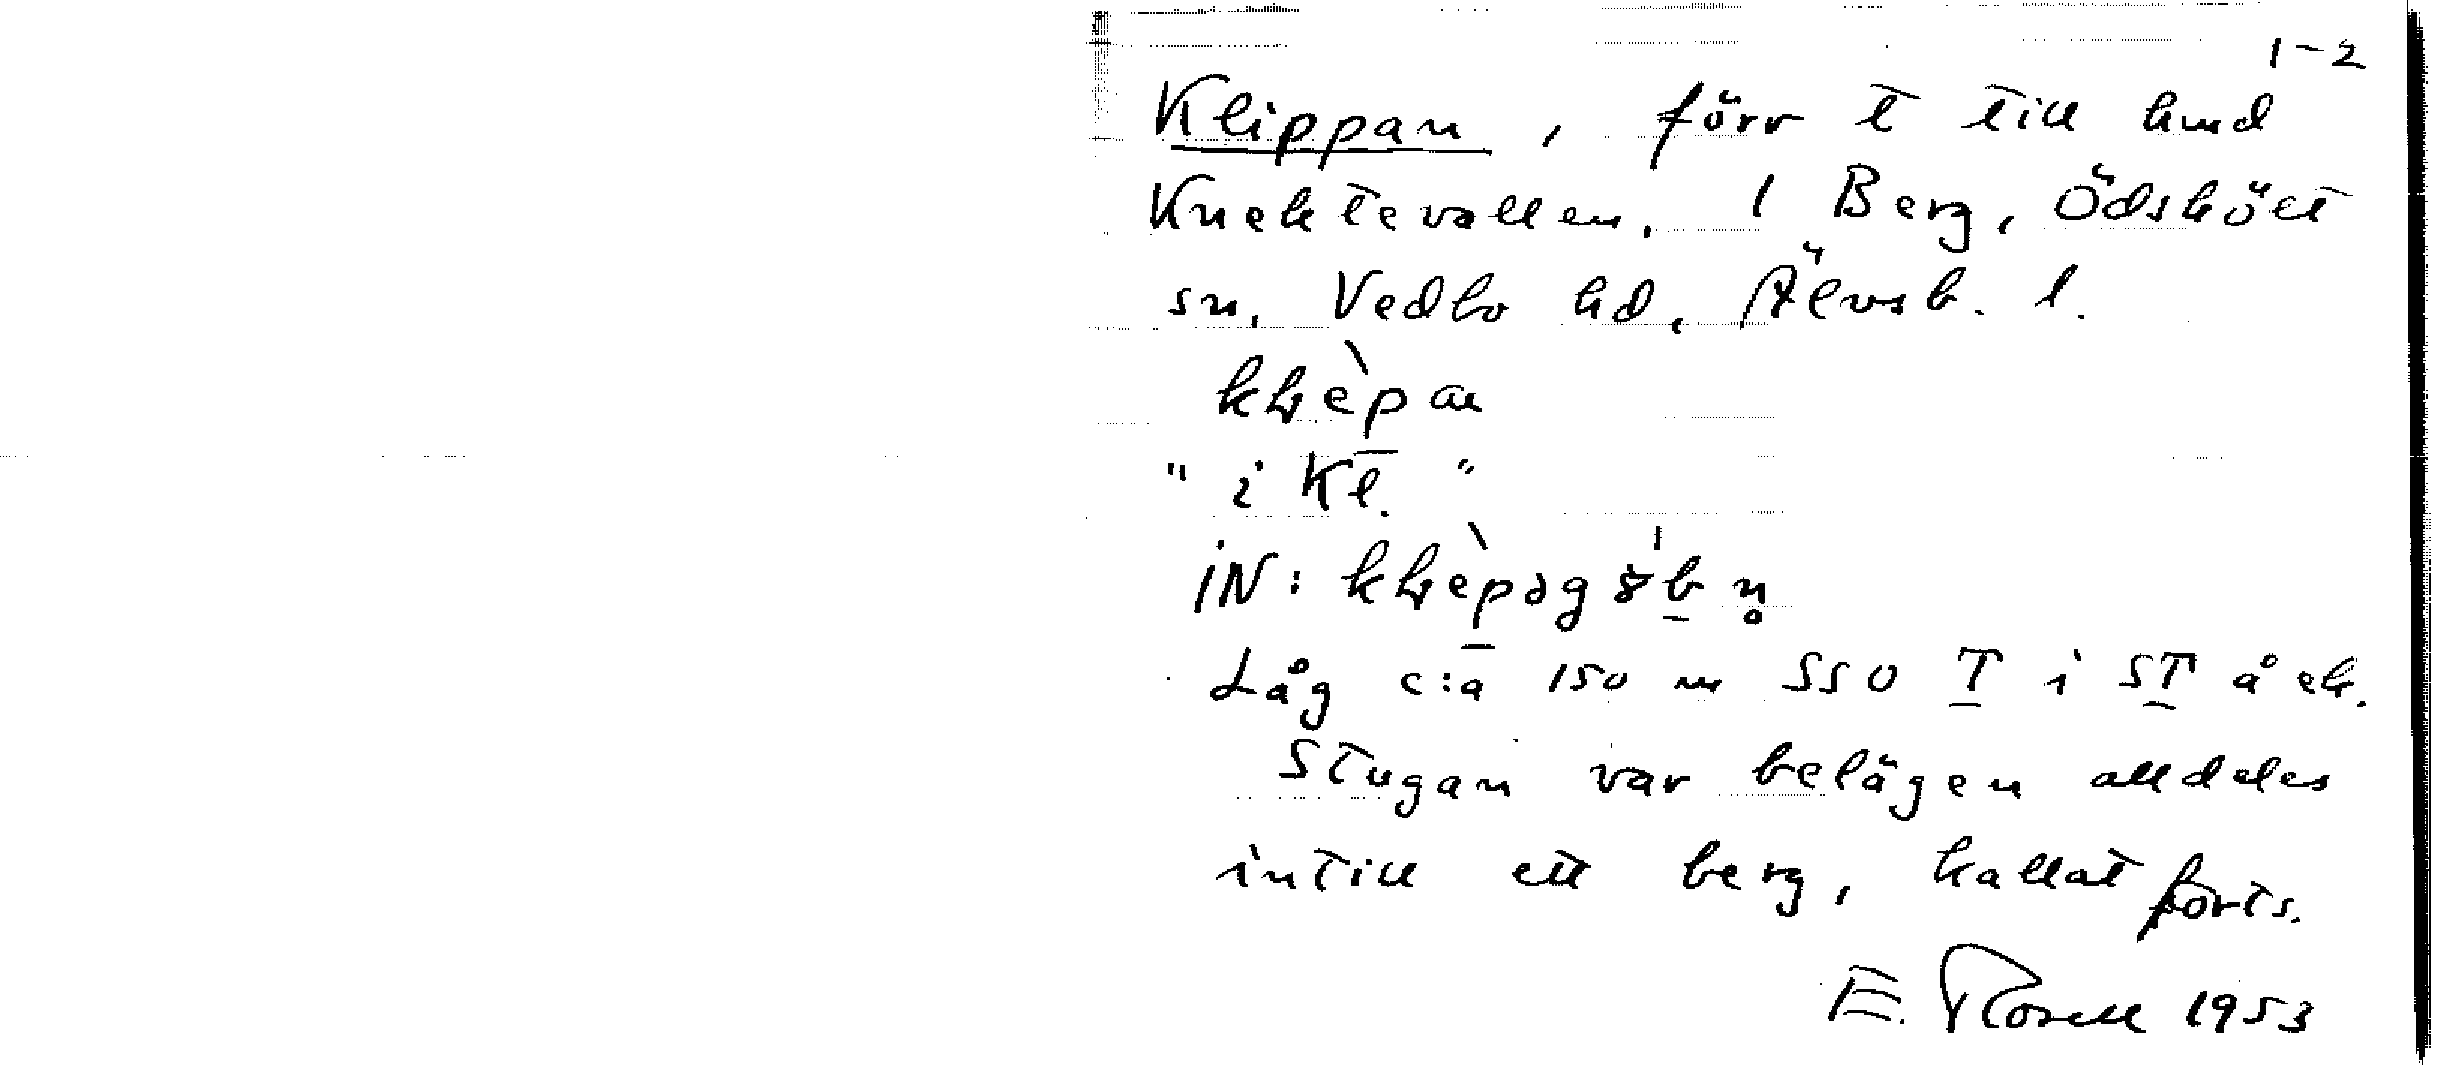 1-2
Klippan, förr t till hmd
Knektevallen. 1 Berg, Ödsköct
sn, Vedbo hd, Älvsb. l.
"i Kl."
iN:
Låg c:a 150 m SSO T i ST å ek.
Stugan var belägen alldeles
intill ett berg, kallat forts.
E. Rosell 1953